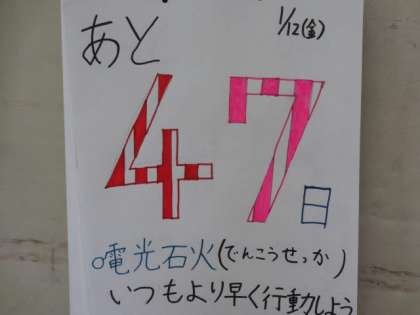 1/12(金)
あと
47日
○電光石火(でんこうせっか)
いつもより早く行動しよう